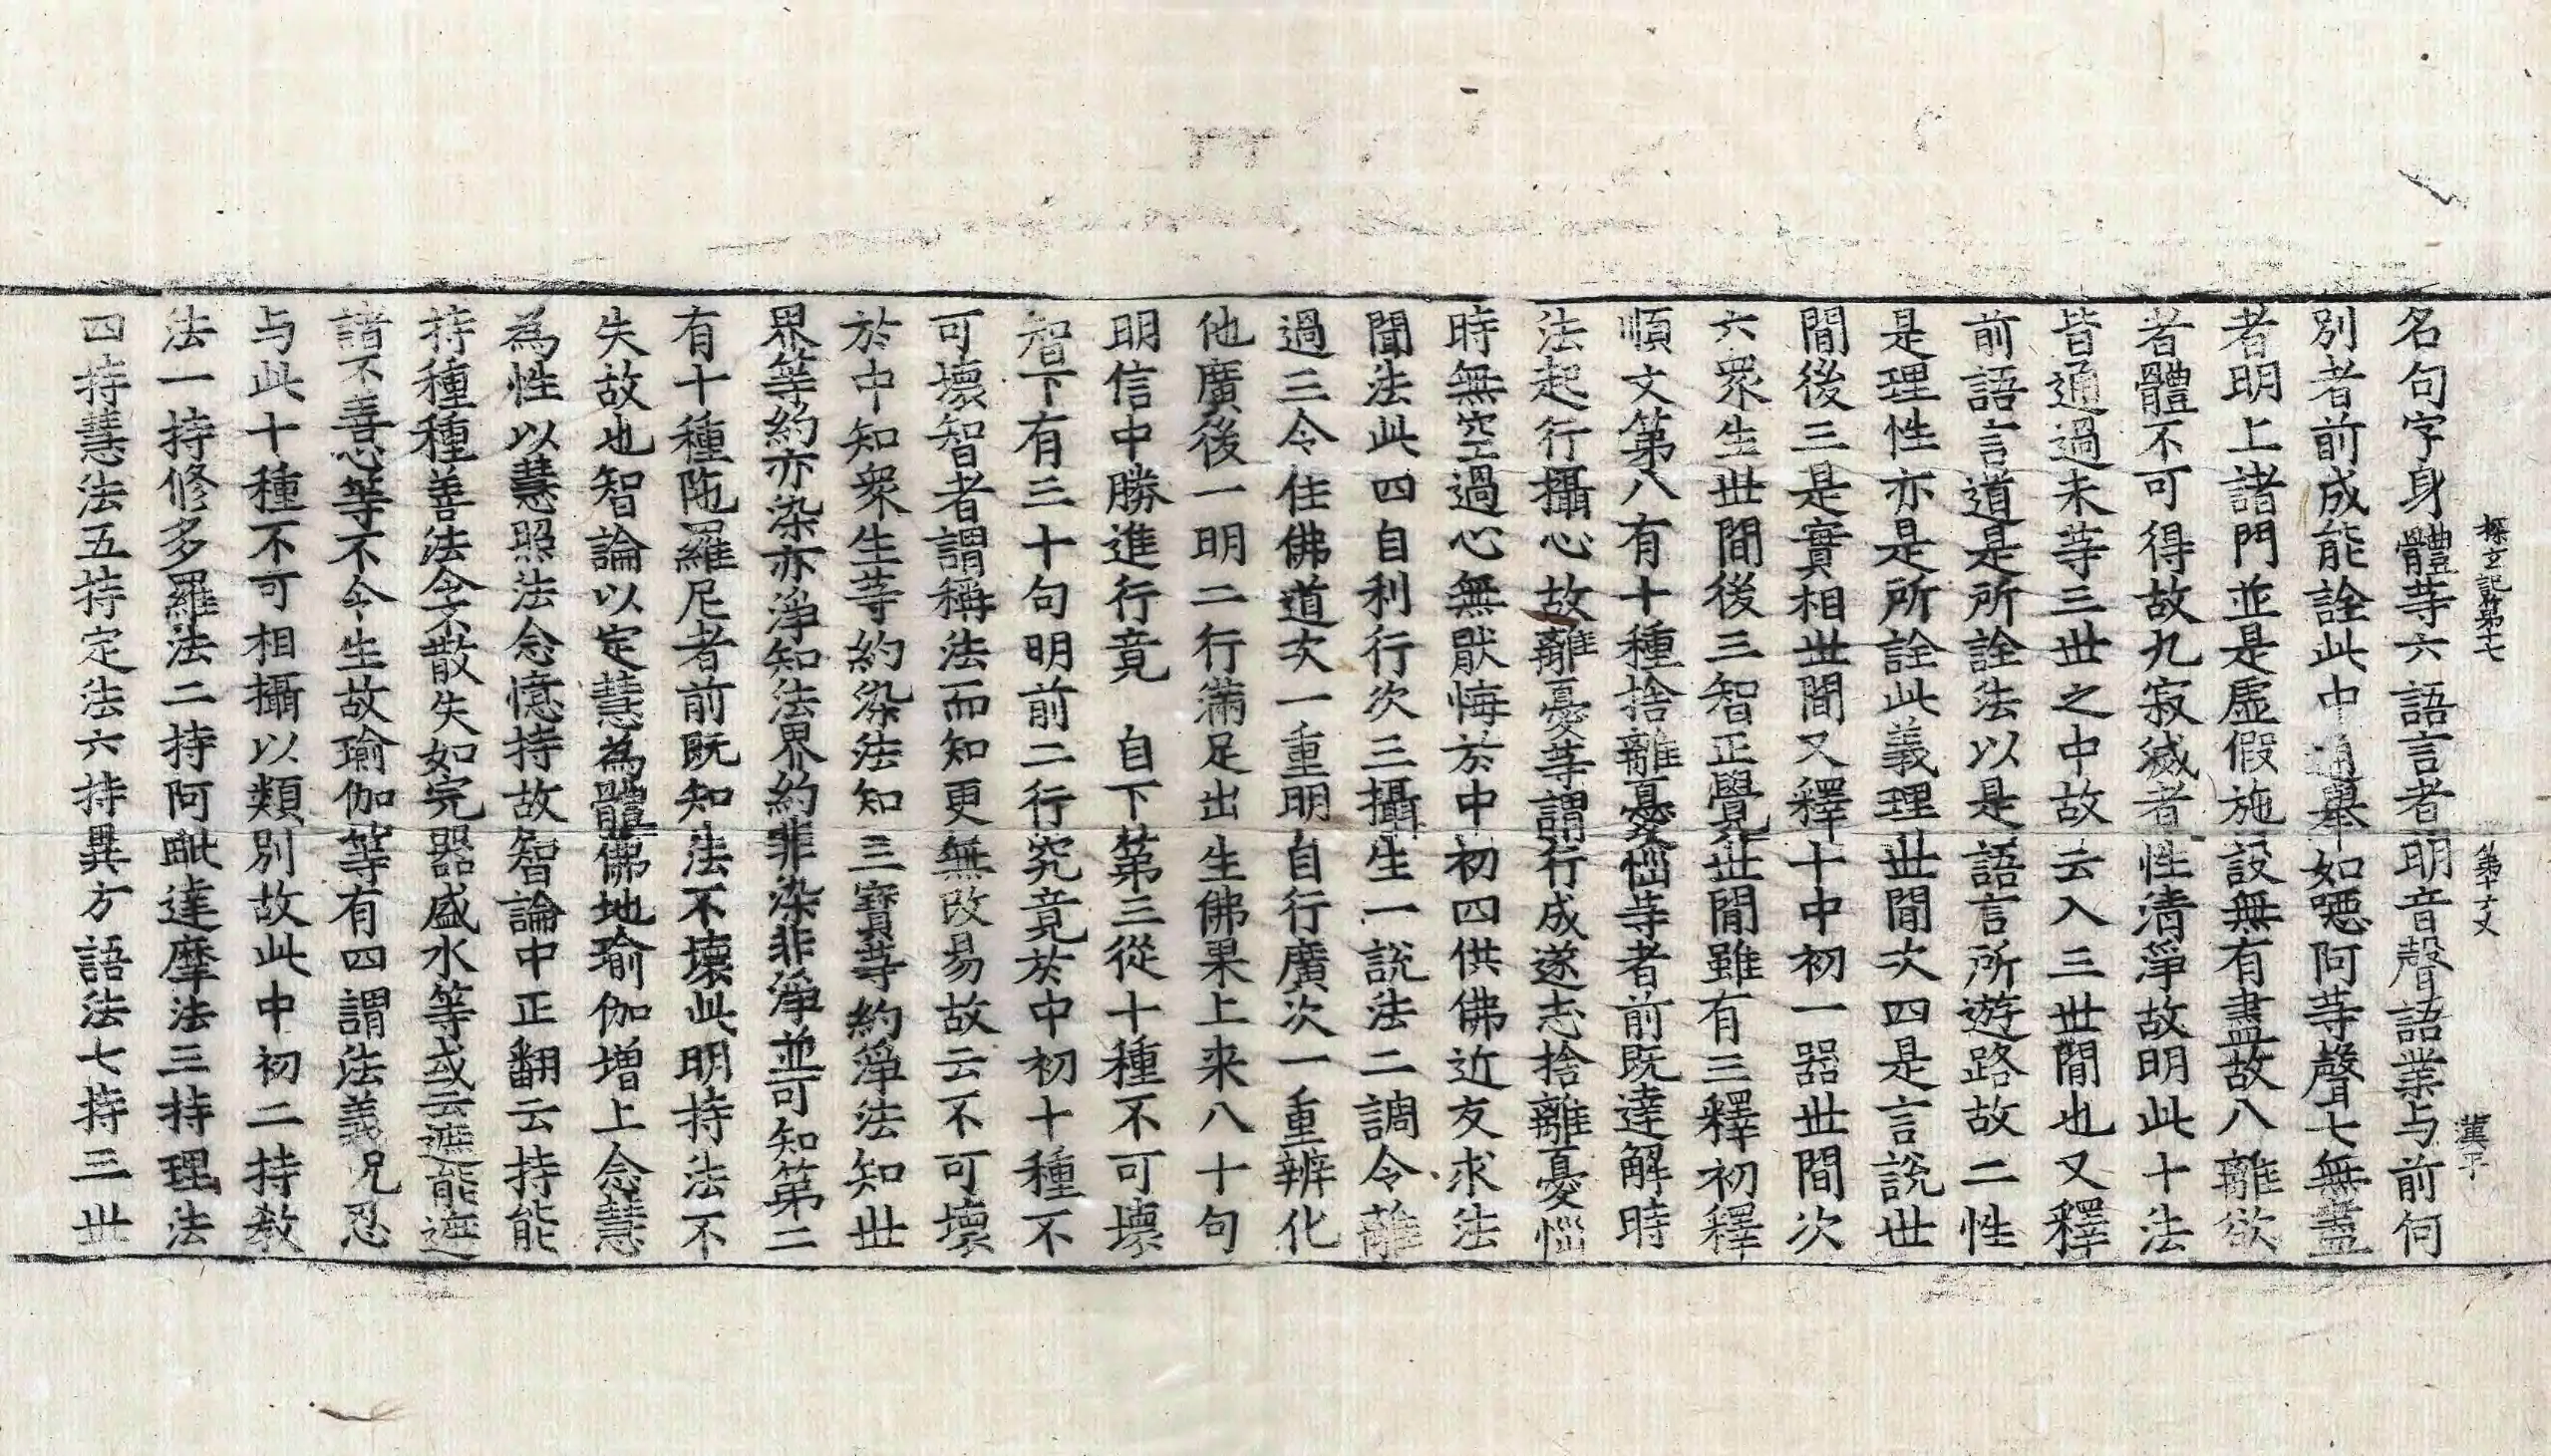 探玄記第十七　第十丈　漢平
名句字身體等六語言者明音聲語業与前何
別者前成能詮此中通舉如噁阿等聲七無盡
者明上諸門並是虛假施設無有盡故八離欲
者體不可得故九寂滅者性清淨故明此十法
皆通過未等三世之中故云入三世間也又釋
前語言道是所詮法以是語言所遊路故二性
是理性亦是所詮此義理世間次四是言說世
間後三是實相世間又釋十中初一器世間次
六眾生世間後三智正覺世間雖有三釋初釋
順文第八有十種捨離憂惱等者前既達解時
法起行攝心故離憂等謂行成遂志捨離憂惱
時無空過心無厭悔於中初四供佛近友求法
聞法此四自利行次三攝生一說法二調令離
過三令住佛道次一重明自行廣次一重辨化
他廣後一明二行滿足出生佛果上来八十句
明信中勝進行竟　自下第三從十種不可壞
智下有三十句明前二行究竟於中初十種不
可壞智者謂稱法而知更無改易故云不可壞
於中知眾生等約染法知三寶等約淨法知世
界等約亦染亦淨知法界約非染非淨並可知第二
有十種陁羅尼者前既知法不壞此明持法不
失故也智論以定慧為體佛地瑜伽增上念慧
為性以慧照法念憶持故智論中正翻云持能
持種種善法令不散失如完器盛水等或云遮能遮
諸不善心等不令生故瑜伽等有四謂法義呪忍
与此十種不可相攝以類別故此中初二持教
法一持修多羅法二持阿毗達摩法三持理法
四持慧法五持定法六持異方語法七持三世